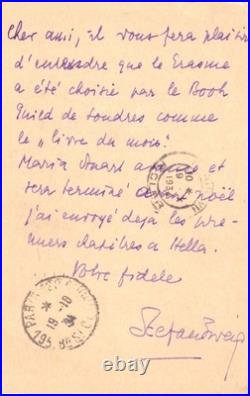 Cher ami, il vous fera plaisir
d'entendre que le Erasme
a été choisie par le Book
Guild de Londres comme
le "livre du mois".
Maria Stuart avance et
sera terminé avant noël
j'ai envoyé deja les pre-
miers chapitres à Hella.
Votre fidele
Stefan Zweig
PARIS
19 - 10
34
195